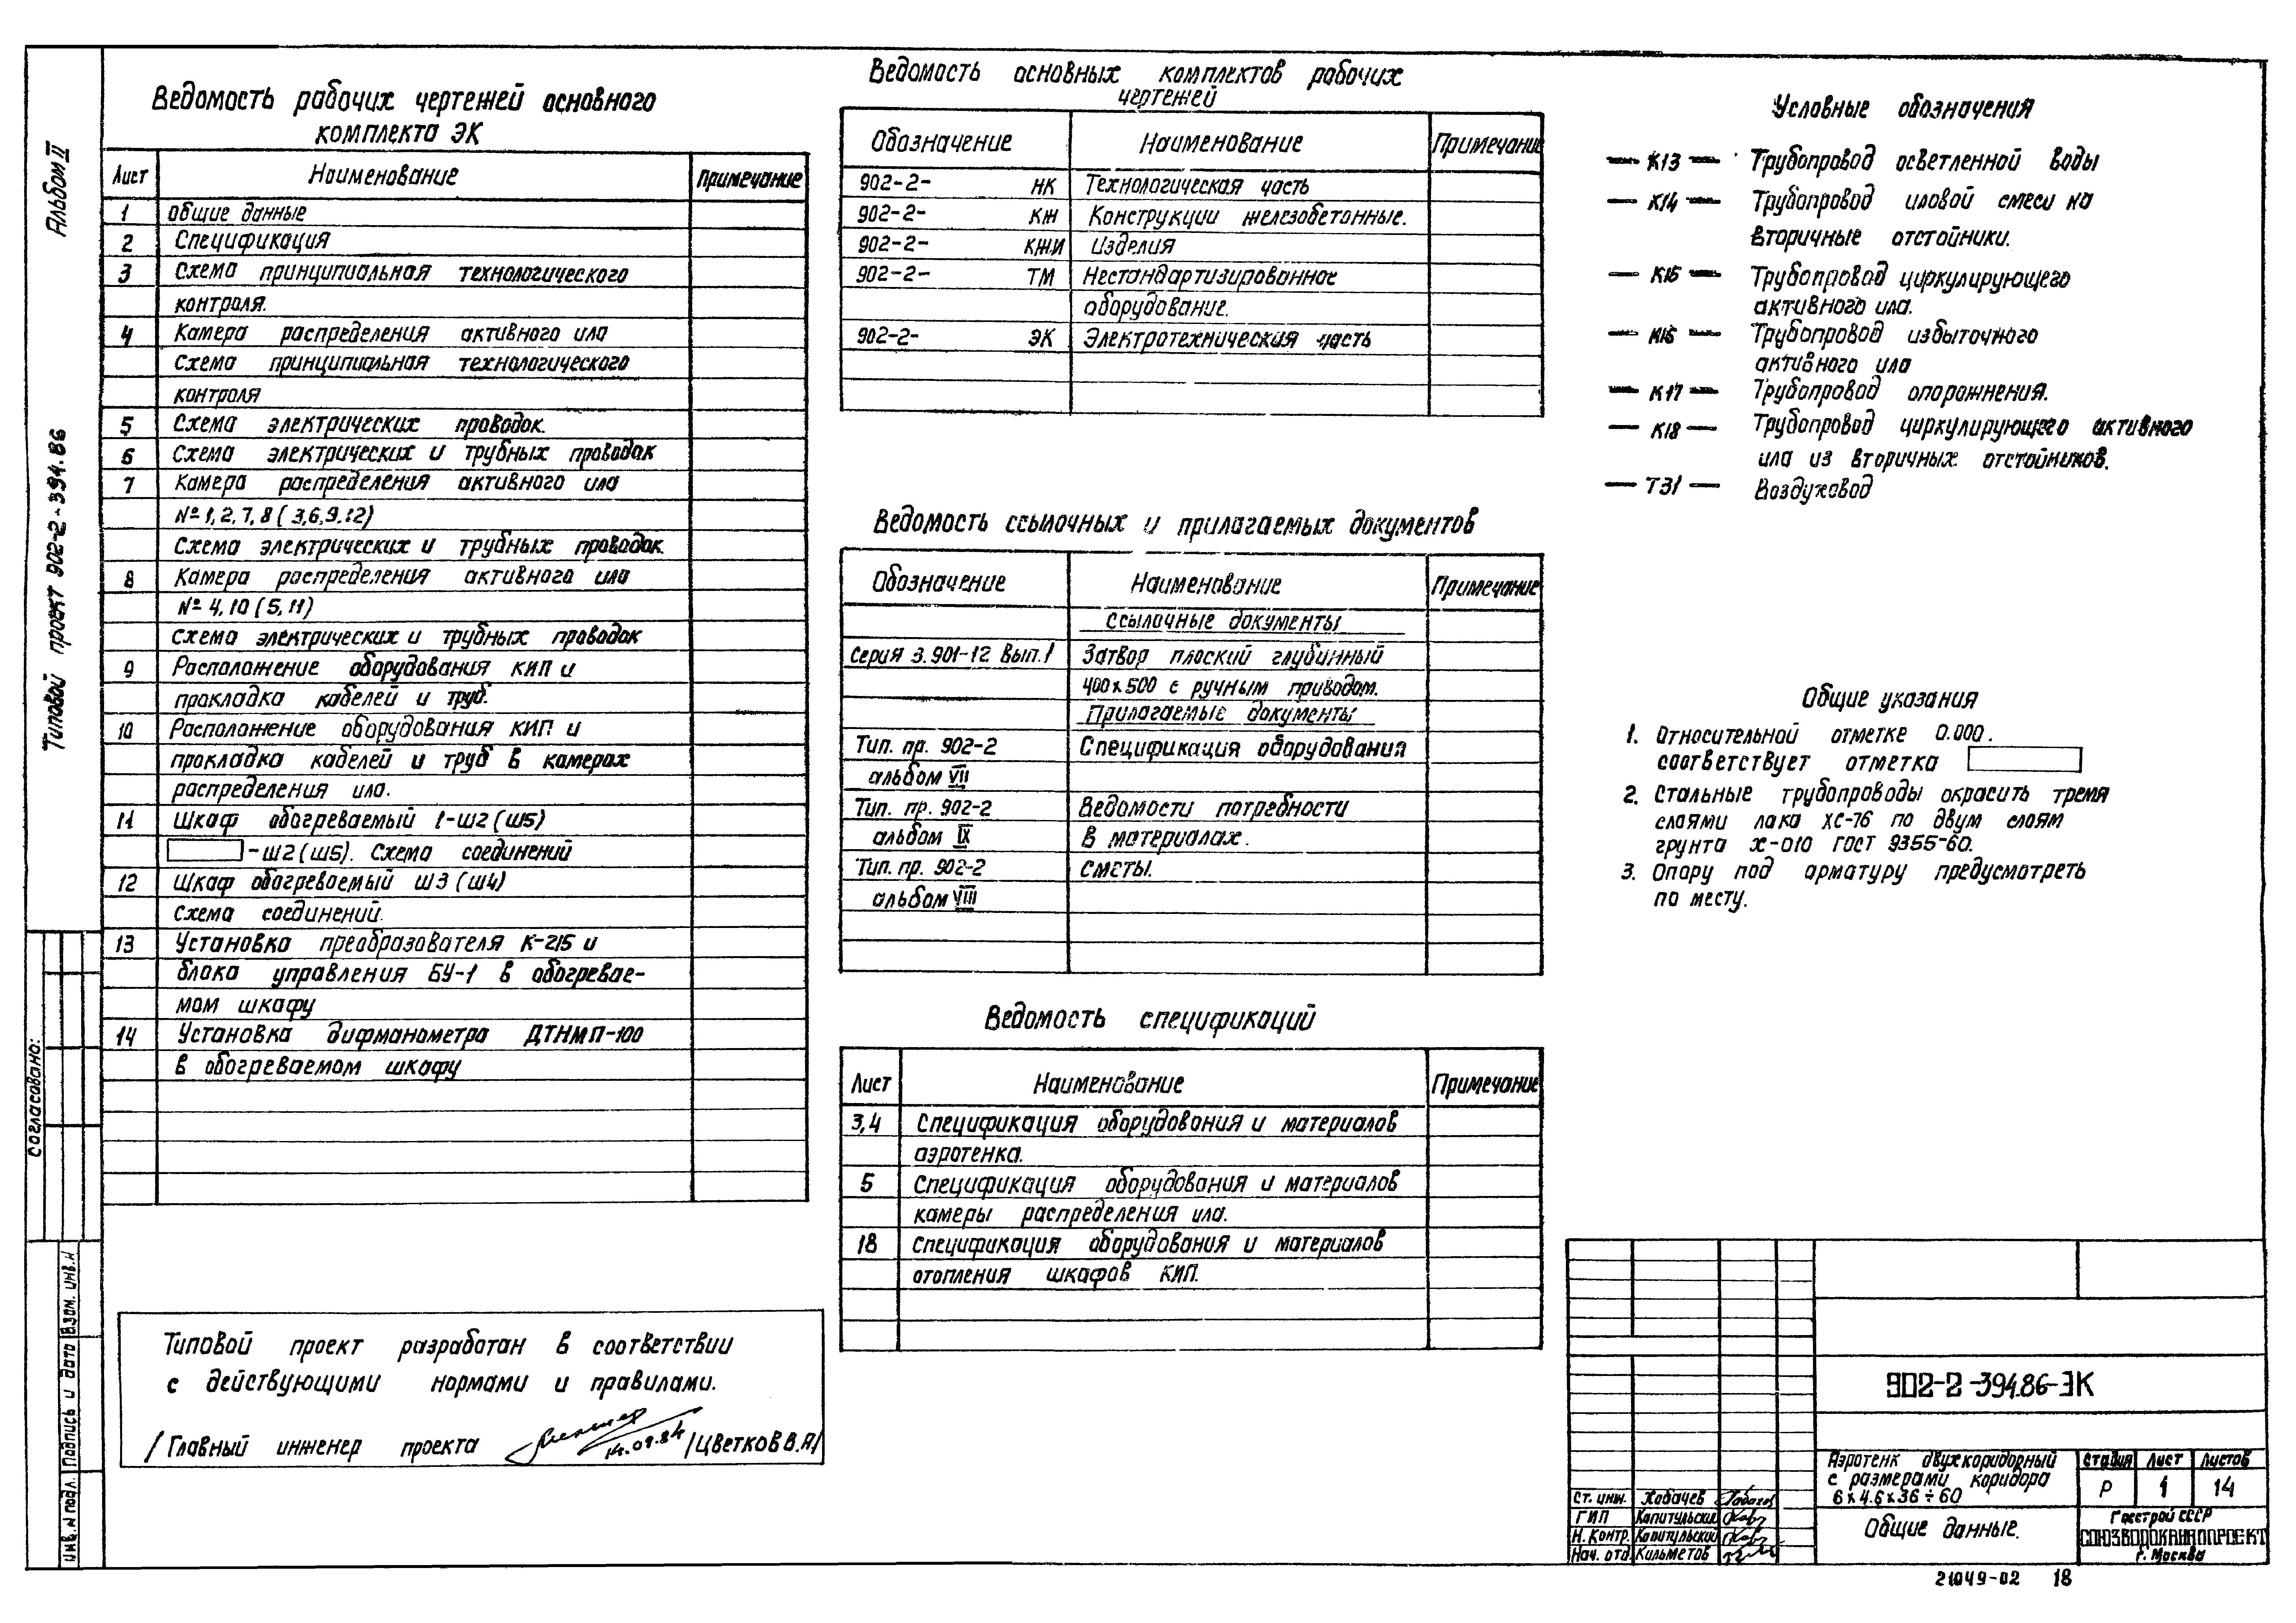 Альбом II
Типовой проект 902-2-394.86
Согласовано:
Взам. инв. N
Подпись и дата
Инв. N подл.
Ведомость рабочих чертежей основного
комплекта ЭК
Лист Наименование Примечание
1 Общие данные
2 Спецификация
3 Схема принципиальная технологического
контроля.
4 Камера распределения активного ила
Схема принципиальная технологического
контроля
5 Схема электрических проводок.
6 Схема электрических и трубных проводок
7 Камера распределения активного ила
№ 1, 2, 7, 8 (3, 6, 9, 12)
Схема электрических и трубных проводок.
8 Камера распределения активного ила
№ 4, 10 (5, 11)
Схема электрических и трубных проводок
9 Расположение оборудования КИП и
прокладка кабелей и труб.
10 Расположение оборудования КИП и
прокладка кабелей и труб в камерах
распределения ила.
11 Шкаф обогреваемый 1-Ш2 (Ш5)
-Ш2 (Ш5). Схема соединений
12 Шкаф обогреваемый Ш3 (Ш4)
Схема соединений.
13 Установка преобразователя К-215 и
блока управления БУ-1 в обогревае-
мом шкафу
14 Установка дифманометра ДТНМП-100
в обогреваемом шкафу
Типовой проект разработан в соответствии
с действующими нормами и правилами.
/Главный инженер проекта 14.09.84 /Цветков В.А/
Ведомость основных комплектов рабочих
чертежей
Обозначение Наименование Примечание
902-2- НК Технологическая часть
902-2- КЖ Конструкции железобетонные.
902-2- КЖИ Изделия
902-2- ТМ Нестандартизированное
оборудование.
902-2- ЭК Электротехническая часть
Ведомость ссылочных и прилагаемых документов
Обозначение Наименование Примечание
Ссылочные документы
Серия 3.901-12 Вып.1 Затвор плоский глубинный
400х500 с ручным приводом.
Прилагаемые документы
Тип. пр. 902-2 Спецификация оборудования
альбом VII
Тип. пр. 902-2 Ведомости потребности
альбом IX в материалах.
Тип. пр. 902-2 Сметы.
альбом VIII
Ведомость спецификаций
Лист Наименование Примечание
3,4 Спецификация оборудования и материалов
аэротенка.
5 Спецификация оборудования и материалов
камеры распределения ила.
18 Спецификация оборудования и материалов
отопления шкафов КИП.
Условные обозначения
К13 Трубопровод осветленной воды
К14 Трубопровод иловой смеси на
вторичные отстойники.
К15 Трубопровод циркулирующего
активного ила.
К16 Трубопровод избыточного
активного ила
К17 Трубопровод опорожнения.
К18 Трубопровод циркулирующего активного
ила из вторичных отстойников.
Т31 Воздуховод
Общие указания
1. Относительной отметке 0.000.
соответствует отметка
2. Стальные трубопроводы окрасить тремя
слоями лака ХС-76 по двум слоям
грунта Х-010 ГОСТ 9355-60.
3. Опору под арматуру предусмотреть
по месту.
902-2-394.86-ЭК
Аэротенк двухкоридорный
с размерами коридора
6х4.6х36÷60
Стадия Лист Листов
Р 1 14
Общие данные.
Госстрой СССР
СОЮЗВОДОКАНАЛПРОЕКТ
г. Москва
Ст. инж. Хобачев
ГИП Капитульский
Н. контр. Капитульский
Нач. отд. Кильметов
21049-02 18